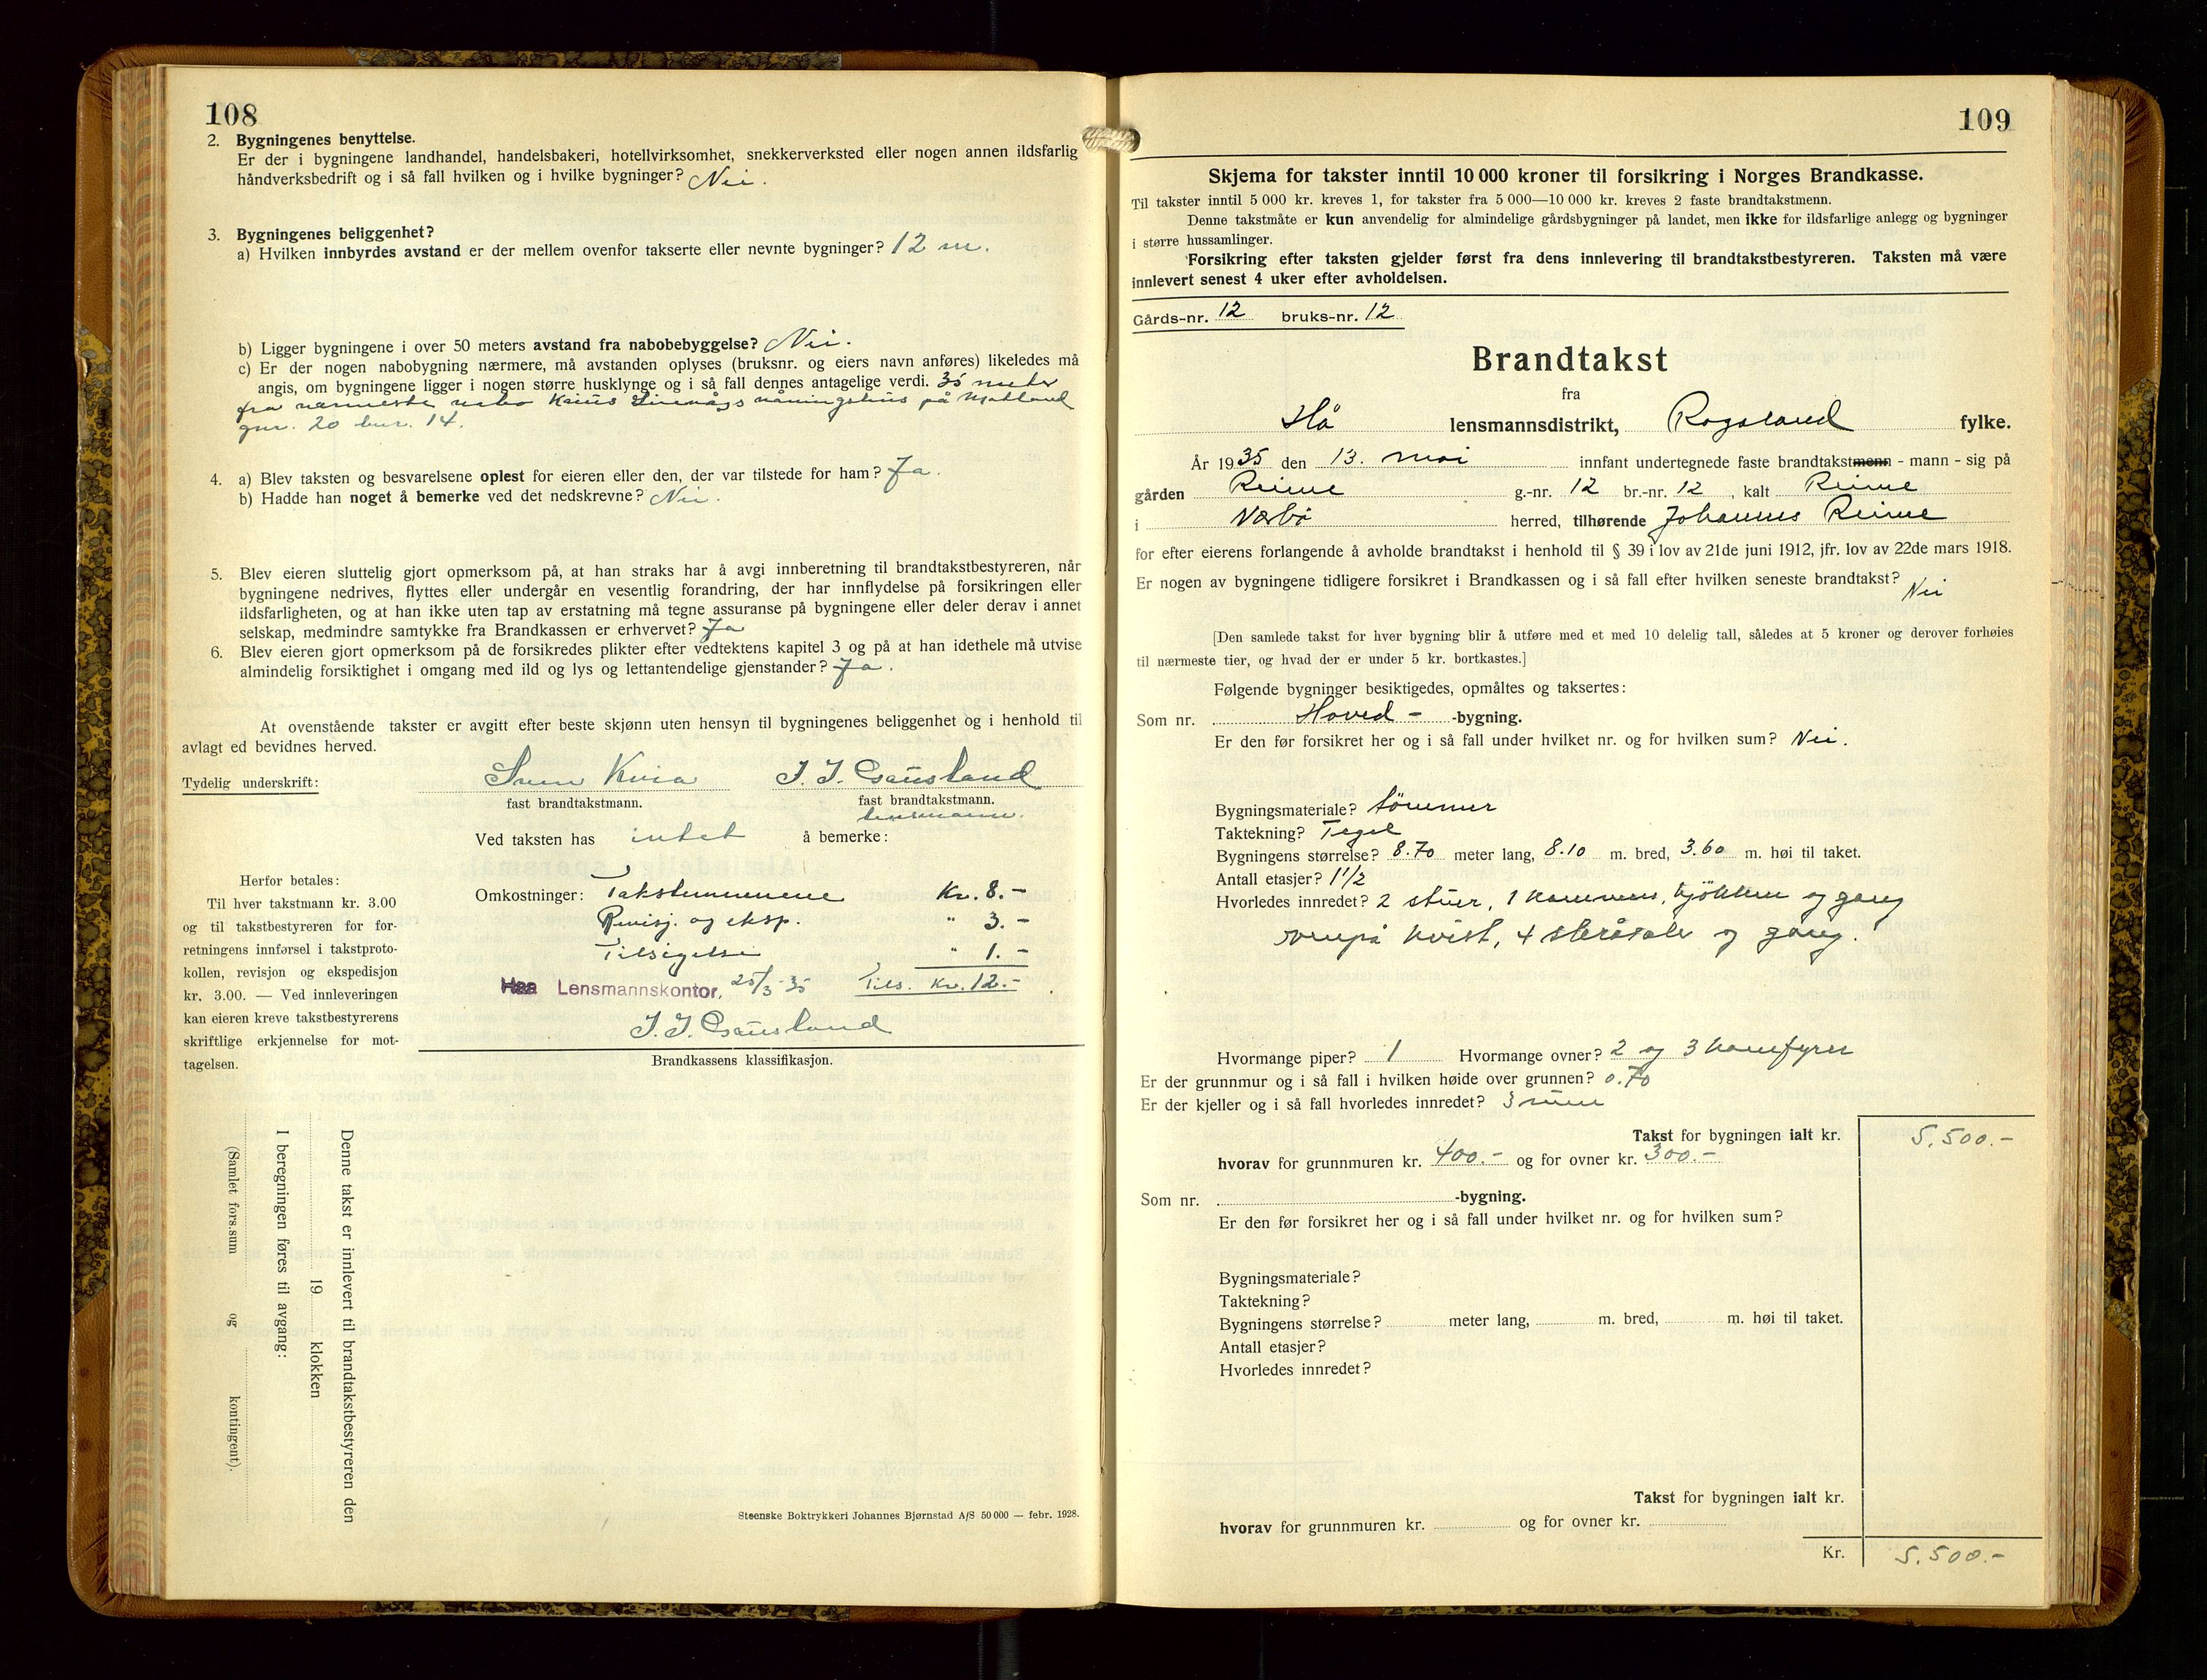 108
2. Bygningenes benyttelse.
Er der i bygningene landhandel, handelsbakeri, hotellvirksomhet, snekkerverksted eller nogen annen ildsfarlig
håndverksbedrift og i så fall hvilken og i hvilke bygninger? Nei.
3. Bygningenes beliggenhet?
a) Hvilken innbyrdes avstand er der mellem ovenfor takserte eller nevnte bygninger? 12 m.
b) Ligger bygningene i over 50 meters avstand fra nabobebyggelse? Nei.
c) Er der nogen nabobygning nærmere, må avstanden oplyses (bruksnr. og eiers navn anføres) likeledes må
angis, om bygningene ligger i nogen større husklynge og i så fall dennes antagelige verdi. 35 meter
fra nærmeste nabo våningshus på Matland
gnr. 20 bnr. 14.
4. a) Blev taksten og besvarelsene oplest for eieren eller den, der var tilstede for ham? Ja.
b) Hadde han noget å bemerke ved det nedskrevne? Nei.
5. Blev eieren sluttelig gjort opmerksom på, at han straks har å avgi innberetning til brandtakstbestyreren, når
bygningene nedrives, flyttes eller undergår en vesentlig forandring, der har innflydelse på forsikringen eller
ildsfarligheten, og at han ikke uten tap av erstatning må tegne assuranse på bygningene eller deler derav i annet
selskap, medmindre samtykke fra Brandkassen er erhvervet? Ja
6. Blev eieren gjort opmerksom på de forsikredes plikter efter vedtektens kapitel 3 og på at han idethele må utvise
almindelig forsiktighet i omgang med ild og lys og lettantendelige gjenstander? Ja.
At ovenstående takster er avgitt efter beste skjønn uten hensyn til bygningenes beliggenhet og i henhold til
avlagt ed bevidnes herved.
Tydelig underskrift: Sven Kvia J. J. Gausland
fast brandtakstmann. fast brandtakstmann.
lensmann.
Ved taksten has intet å bemerke:
Herfor betales:
Til hver takstmann kr. 3.00
og til takstbestyreren for for-
retningens innførsel i takstproto-
kollen, revisjon og ekspedisjon
kr. 3.00. — Ved innleveringen
kan eieren kreve takstbestyrerens
skriftlige erkjennelse for mot-
tagelsen.
Omkostninger: Takstmennene Kr. 8.-
Revisj. og eksp. " 3.-
Tilsigelse " 1.-
Haa Lensmannskontor, 25/3-35 Tils. Kr. 12.-
J. J. Gausland
Brandkassens klassifikasjon.
Denne takst er innlevert til brandtakstbestyreren den
19 klokken
I beregningen føres til avgang:
(Samlet fors.sum og kontingent).
Steenske Boktrykkeri Johannes Bjørnstad A/S 50 000 — febr. 1928.
109
Skjema for takster inntil 10 000 kroner til forsikring i Norges Brandkasse.
Til takster inntil 5 000 kr. kreves 1, for takster fra 5 000—10 000 kr. kreves 2 faste brandtakstmenn.
Denne takstmåte er kun anvendelig for almindelige gårdsbygninger på landet, men ikke for ildsfarlige anlegg og bygninger
i større hussamlinger.
Forsikring efter taksten gjelder først fra dens innlevering til brandtakstbestyreren. Taksten må være
innlevert senest 4 uker efter avholdelsen.
Gårds-nr. 12 bruks-nr. 12
Brandtakst
fra
Hå lensmannsdistrikt, Rogaland fylke.
År 1935 den 13. mai innfant undertegnede faste brandtakstmenn - mann - sig på
gården Reime g.-nr. 12 br.-nr. 12, kalt Reime
i Nærbø herred, tilhørende Johannes Reime
for efter eierens forlangende å avholde brandtakst i henhold til § 39 i lov av 21de juni 1912, jfr. lov av 22de mars 1918.
Er nogen av bygningene tidligere forsikret i Brandkassen og i så fall efter hvilken seneste brandtakst? Nei
[Den samlede takst for hver bygning blir å utføre med et med 10 delelig tall, således at 5 kroner og derover forhøies
til nærmeste tier, og hvad der er under 5 kr. bortkastes.]
Følgende bygninger besiktigedes, opmåltes og taksertes:
Som nr. Hoved- -bygning.
Er den før forsikret her og i så fall under hvilket nr. og for hvilken sum? Nei.
Bygningsmateriale? tömmer
Taktekning? Tegel
Bygningens størrelse? 8.70 meter lang, 8.10 m. bred, 3.60 m. høi til taket.
Antall etasjer? 1 1/2
Hvorledes innredet? 2 stuer, 1 kammers, kjökken og gang
ovenpå kvist, 4 og gang.
Hvormange piper? 1 Hvormange ovner? 2 og 3 komfyrer
Er der grunnmur og i så fall i hvilken høide over grunnen? 0.70
Er der kjeller og i så fall hvorledes innredet? 3 rum
Takst for bygningen ialt kr. 5.500.-
hvorav for grunnmuren kr. 400.- og for ovner kr. 300.-
Som nr. -bygning.
Er den før forsikret her og i så fall under hvilket nr. og for hvilken sum?
Bygningsmateriale?
Taktekning?
Bygningens størrelse? meter lang, m. bred, m. høi til taket.
Antall etasjer?
Hvorledes innredet?
Takst for bygningen ialt kr.
hvorav for grunnmuren kr. og for ovner kr.
Kr. 5.500.-